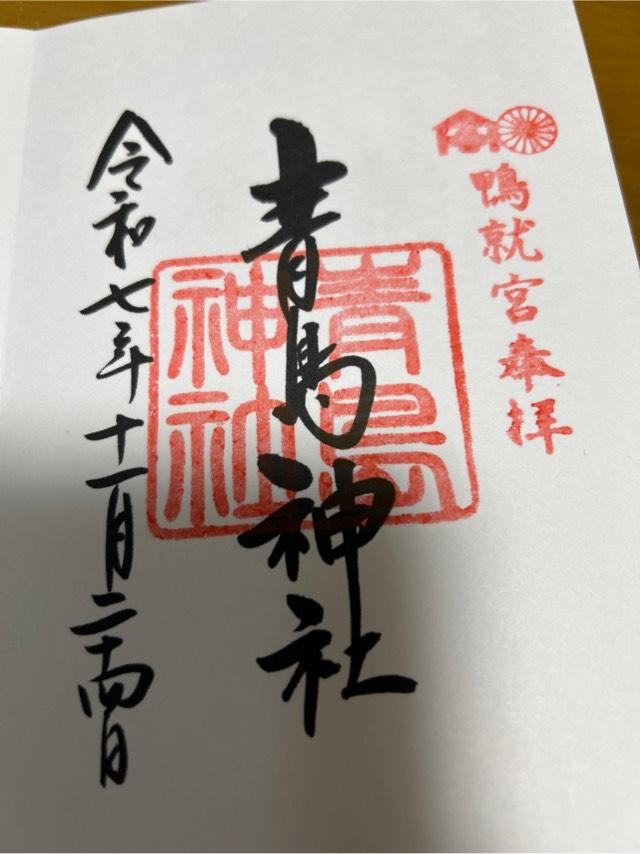 鴨就宮奉拝
青島神社
青島神社
令和七年十一月二十四日